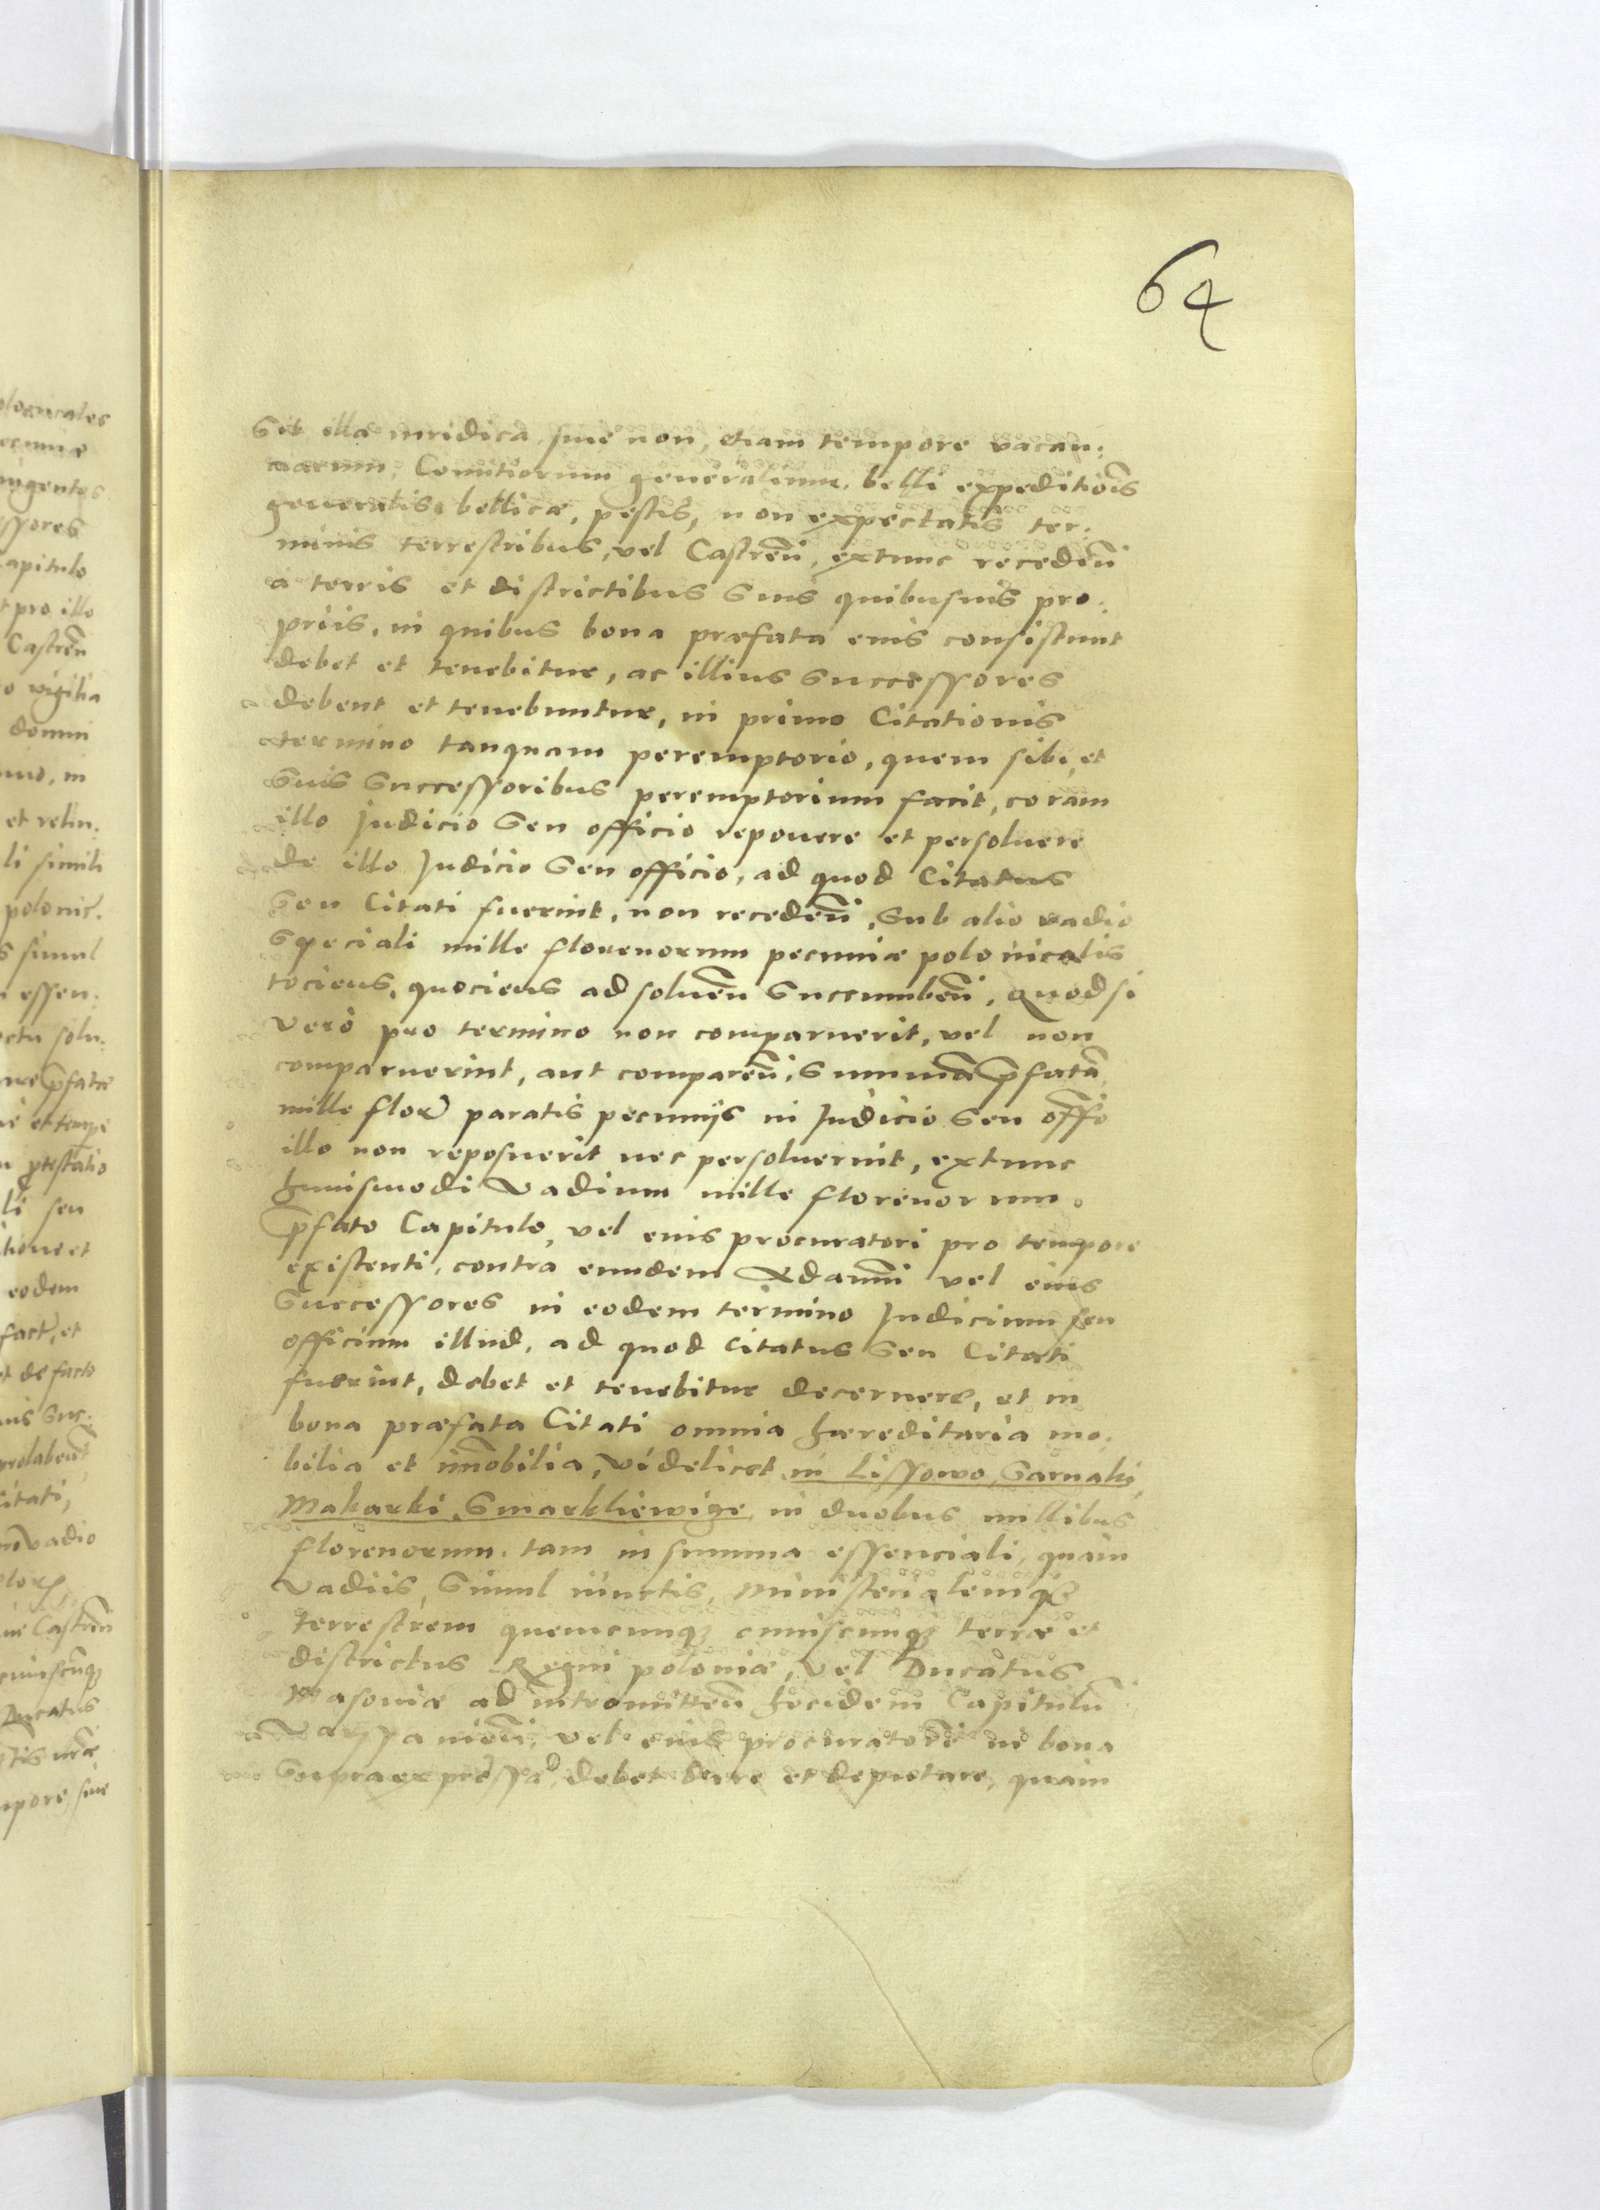 64
sit illa iuridica siue non, etiam tempore vacan:
ciarum, Comitiorum generalium, belli expeditiois
generalis bellicæ, pestis, non expectatis ter:
minis terrestribus, vel Castreñ, extunc recedeñ
a terris et districtibus suis quibusuis pro:
priis, in quibus bona præfata eius consistunt
debet et tenebitur, ac illius successores
debent et tenebuntur, in primo Citationis
termino tanquam peremptorio, quem sibi, et
suis successoribus peremptorium facit, coram
illo Judicio seu officio reponere et persoluere
de illo Judicio seu officio, ad quod Citatus
seu Citati fuerint, non recedeñ, sub alio vadio
speciali mille florenorum pecuniæ polonicalis
tociens, quociens ad solueñ succumbeñ, Quod si
vero pro termino non comparuerit, vel non
comparuerint, aut compareñ, summã p̃fatã
mille floř paratis pecunijs in Judicio seu offo
illo non reposuerit nec persoluerint, extunc
huiusmodi vadium mille florenorum
p̃fato Capitulo, vel eius procuratori pro tempore
existenti, contra eundem Adamũ vel eius
successores in eodem termino Judicium seu
officium illud, ad quod citatus seu Citati
fuerint, debet et tenebitur decernere, et in
bona præfata Citati omnia hæreditaria mo:
bilia et im̃obilia, videlicet in Lissowo, Sarnaki,
Makarki, Smarkliewige, in duobus millibus
florenorum, tam in summa essenciali, quam
vadiis, simul iunctis, ministerialemqʒ
terrestrem quemcunqʒ cuiuscunqʒ terræ et
districtus Regni poloniæ, vel Ducatus
Masoviæ ad intromitteñ hocidem Capitulũ
vel eius procuratorẽ in bona
debet dare et deputare, quam